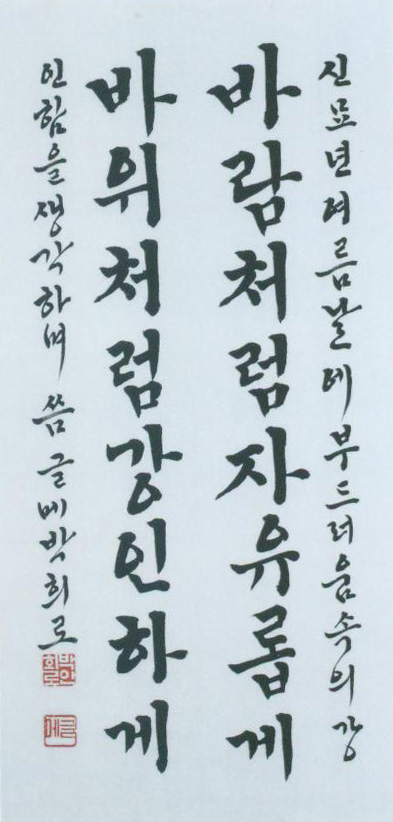 신묘년 여름날에 부드러움 속의 강
바람처럼 자유롭게
바위처럼 강인하게
인함을 생각하며 씀 글메 박희로